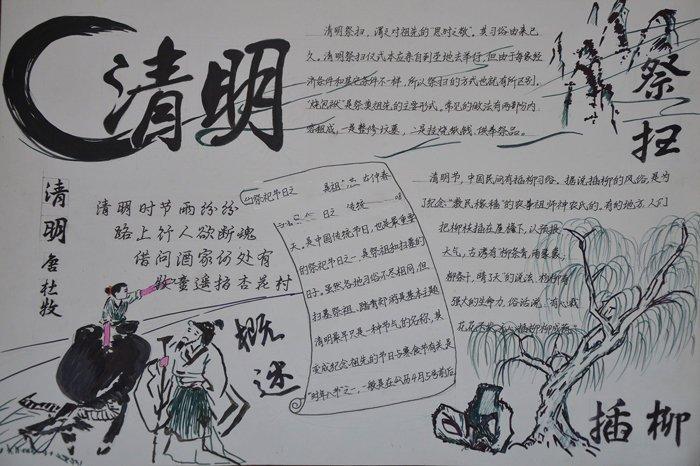 清明
清明祭扫，谓之对祖先的"思时之敬"。其习俗由来已
久。清明祭扫仪式本应亲自到茔地去举行，但由于每家经
济条件和其它条件不一样，所以祭扫的方式也就有所区别。
"烧包袱"是祭奠祖先的主要形式。常见的做法有两部分内
容组成，一是整修坟墓，二是挂烧纸钱、供奉祭品。
祭扫
清明 唐 杜牧
清明时节雨纷纷
路上行人欲断魂
借问酒家何处有
牧童遥指杏花村
概述
祭祀节日之
天。是中国传统节日，也是最重要
的祭祀节日之一，是祭祖和扫墓的
日子。虽然各地习俗不尽相同，但
扫墓祭祖、踏青郊游是基本主题
清明最早只是一种节气的名称，其
变成纪念祖先的节日与寒食节有关是
"时年八节"之一，一般是在公历4月5号前后
清明节，中国民间有插柳习俗。据说插柳的风俗，是为
了纪念"教民稼穑"的农事祖师神农氏的。有的地方，人们
把柳枝插在屋檐下，以预报
天气，古谚有"柳条青，雨蒙蒙；
柳条干，晴了天"的说法。杨柳有
强大的生命力，俗话说："有心栽
花花不发，无心插柳柳成荫。"
插柳